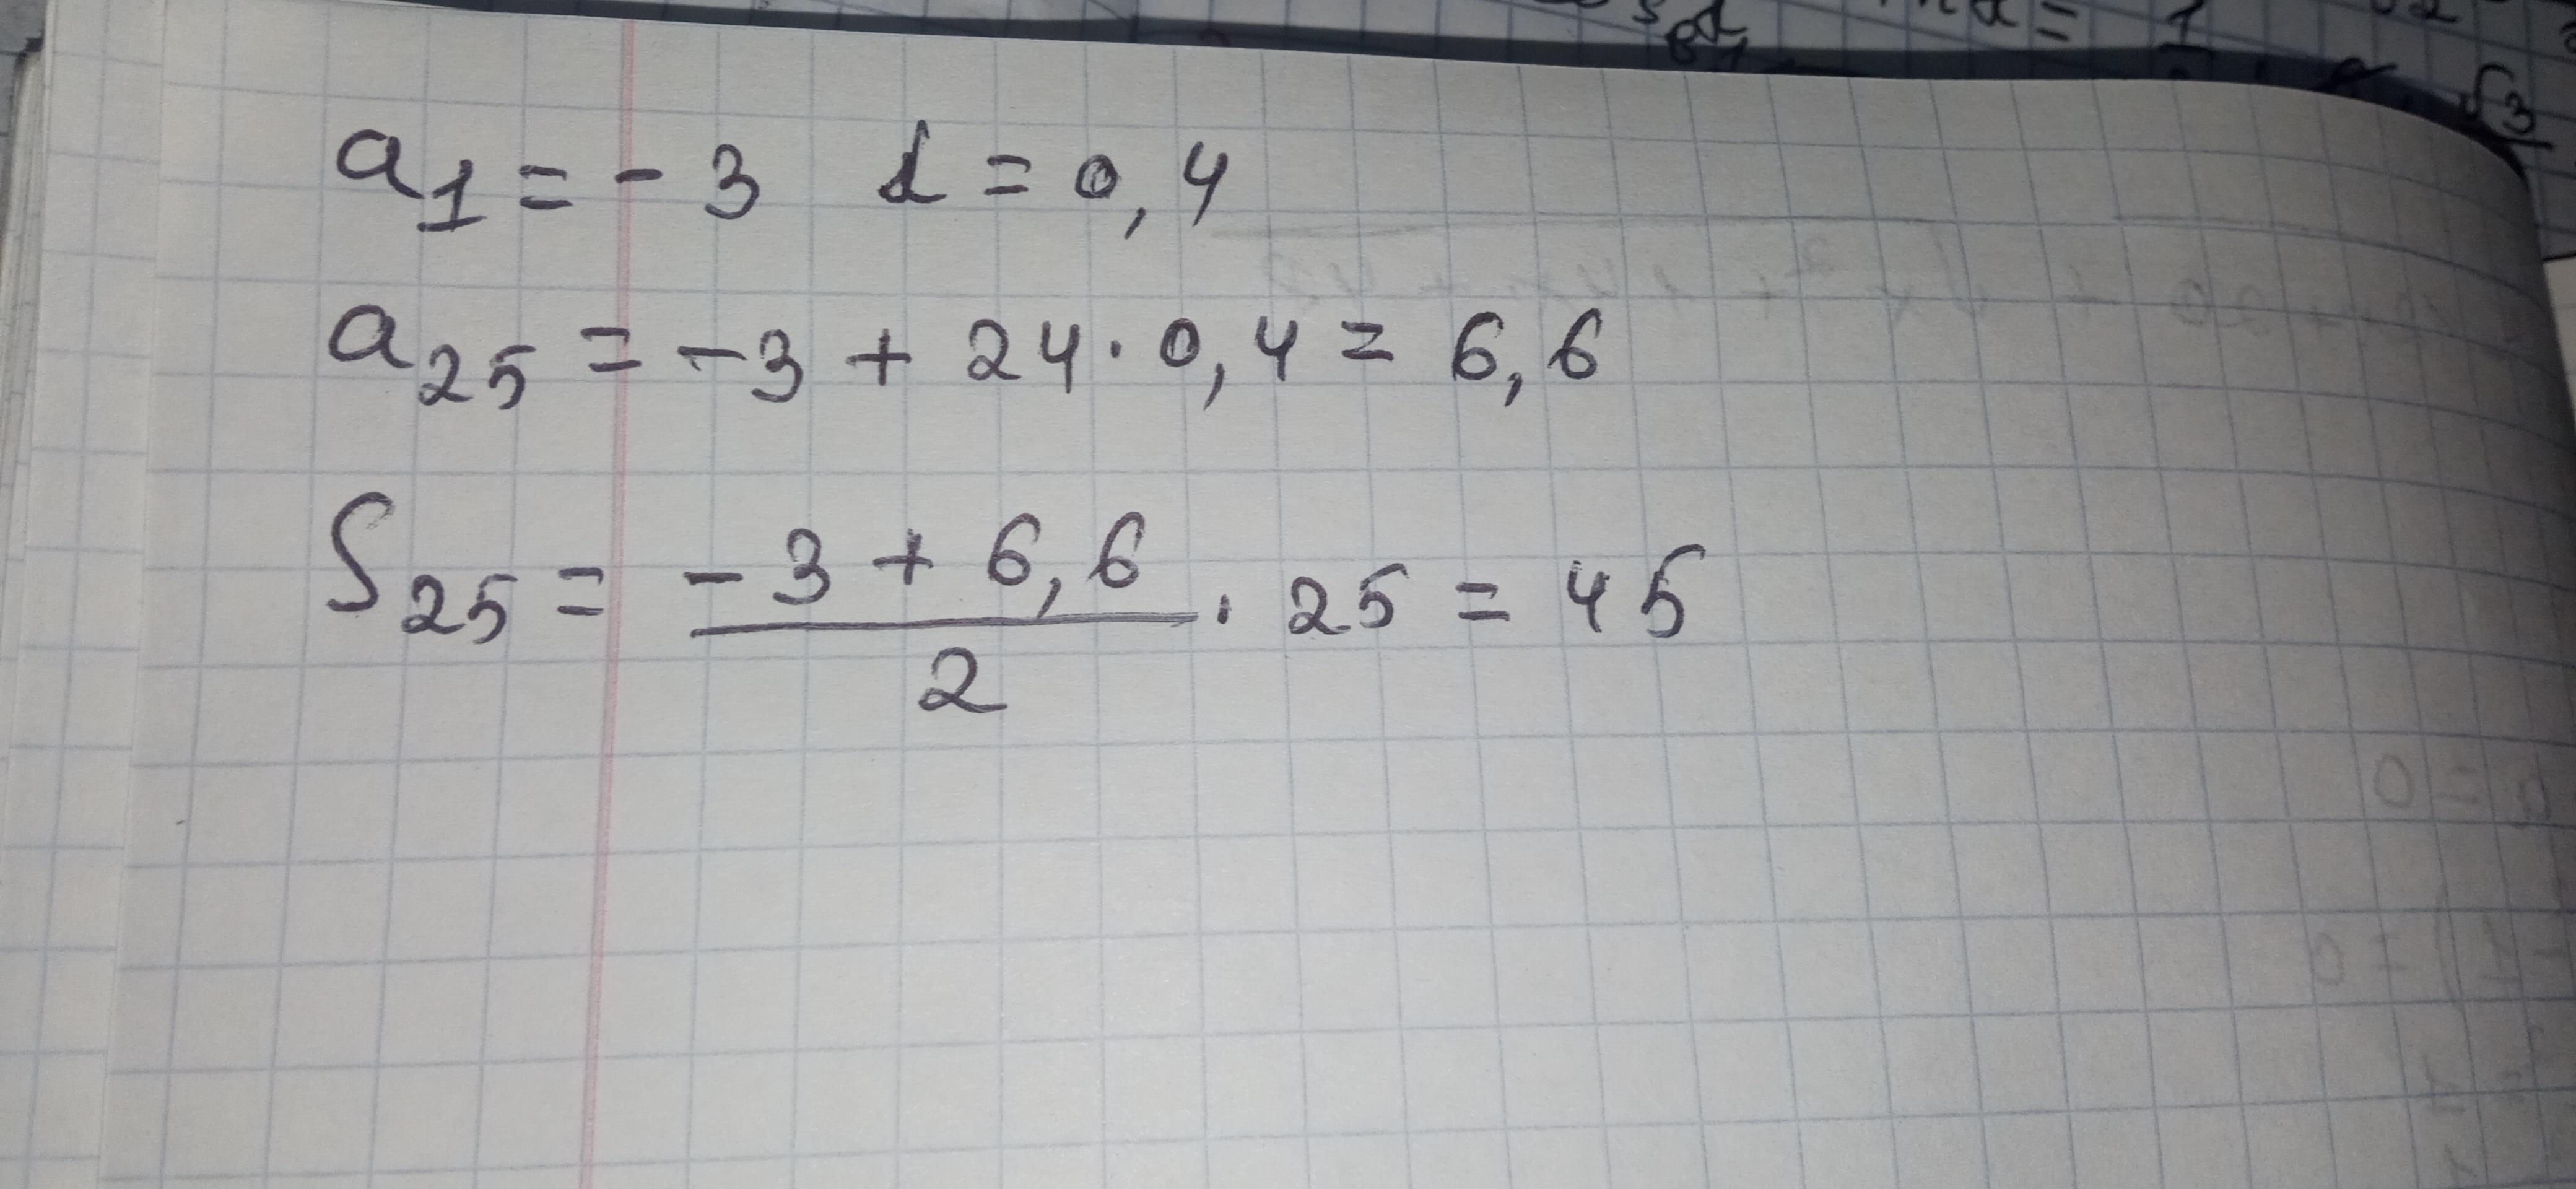 a₁ = - 3 d = 0,4
a₂₅ = -3 + 24 · 0,4 = 6,6
S₂₅ = (-3 + 6,6)/2 · 25 = 45